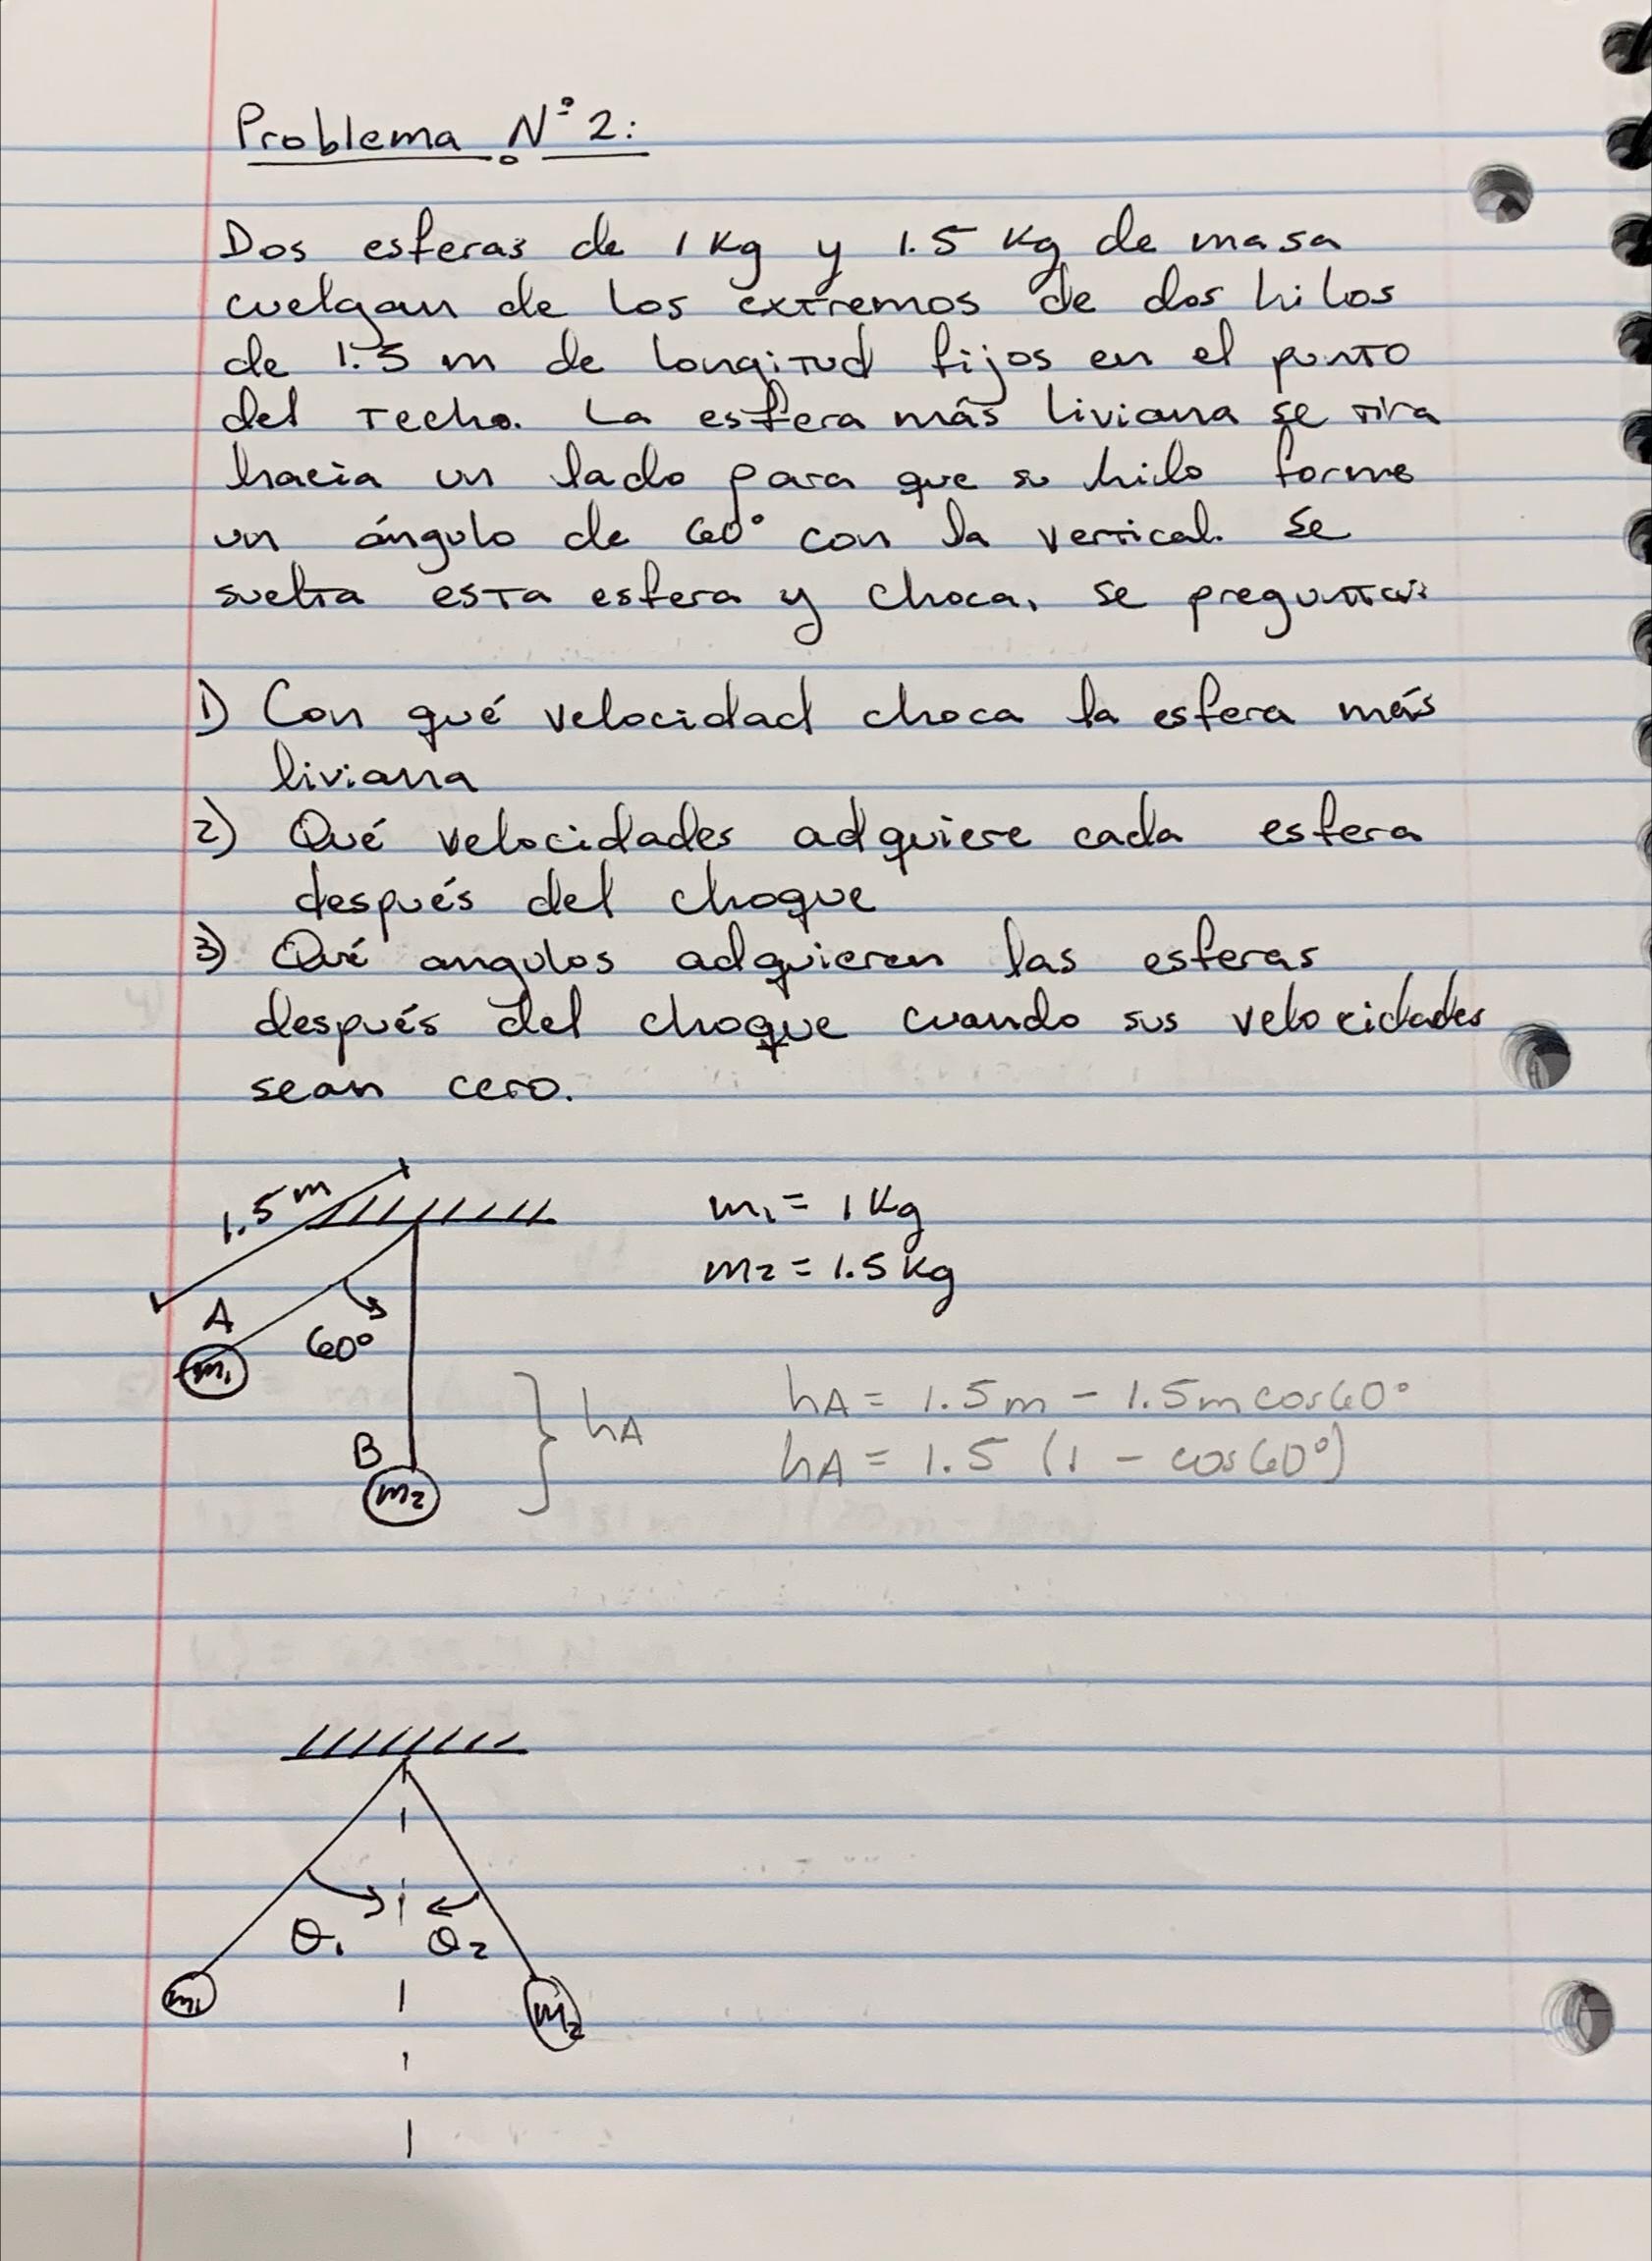 Problema N° 2:
Dos esferas de 1 Kg y 1.5 Kg de masa
cuelgan de los extremos de dos hilos
de 1.5 m de longitud fijos en el punto
del techo. La esfera más liviana se tira
hacia un lado para que su hilo forme
un ángulo de 60° con la vertical. Se
suelta esta esfera y choca, se pregunta:
1) Con qué velocidad choca la esfera más
liviana
2) Qué velocidades adquiere cada esfera
después del choque
3) Qué angulos adquieren las esferas
después del choque cuando sus velocidades
sean cero.
1.5 m
m1 = 1 Kg
m2 = 1.5 Kg
A
60°
m1
hA = 1.5m - 1.5m cos60°
hA
B
hA = 1.5 (1 - cos60°)
m2
θ1 θ2
m1 m2